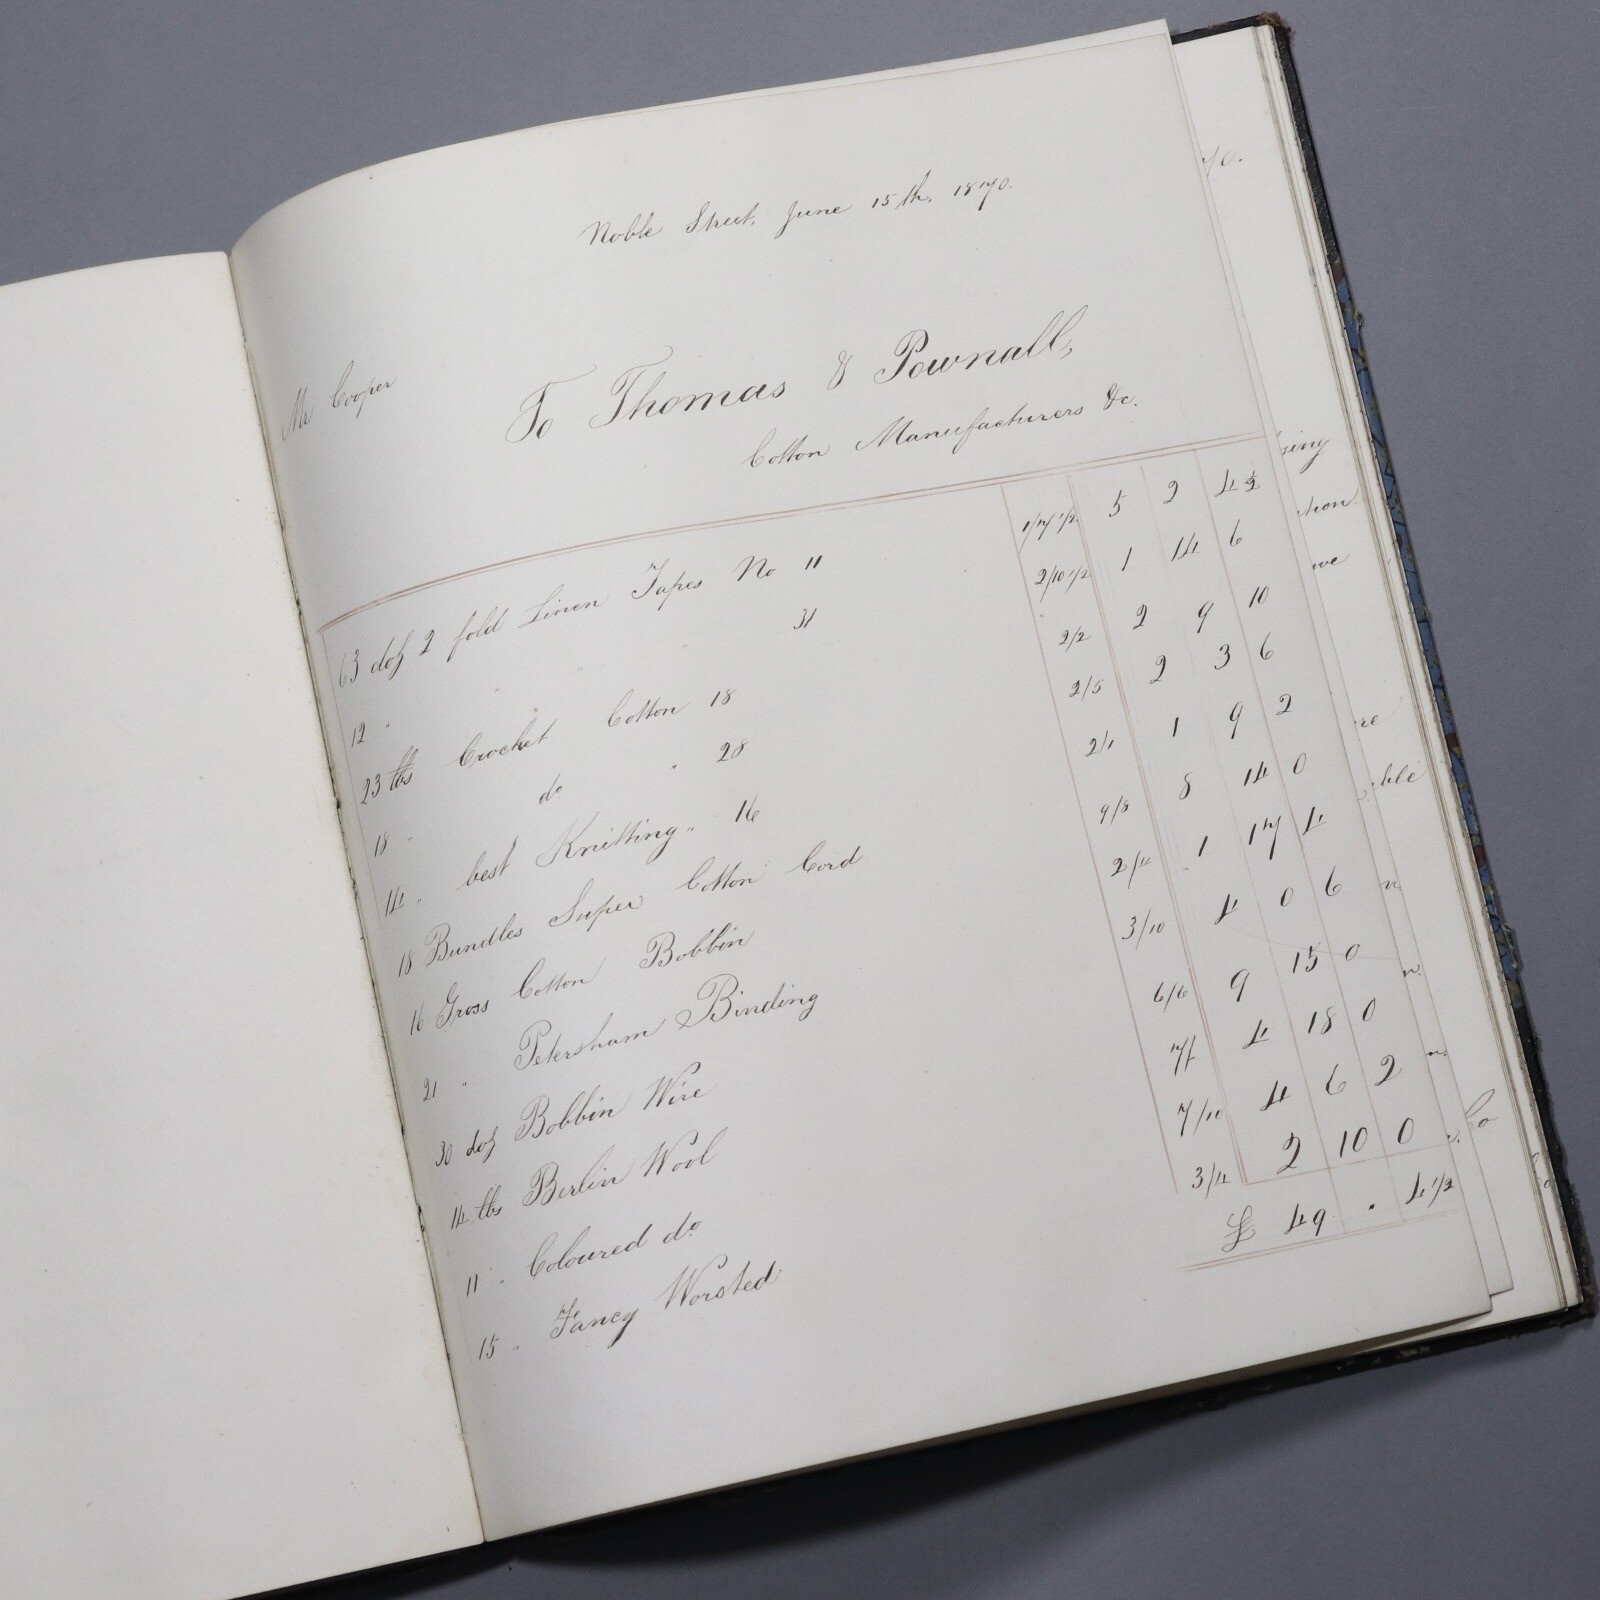 Noble Street, June 15th, 1870.
Mr Cooper
To Thomas & Pownall,
Cotton Manufacturers &c.
63 doz 2 fold Linen Tapes No 11 1/7 1/2 5 2 4 1/2
12 " " " " 31 2/10 1/2 1 14 6
23 lbs Crochet Cotton 18 2/2 2 9 10
18 " do " 28 2/5 2 3 6
14 " best Knitting " 16 2/1 1 9 2
18 Bundles Super Cotton Cord 9/8 8 14 0
16 Gross Cotton Bobbin 2/4 1 17 4
21 " Petersham Binding 3/10 4 0 6
30 doz Bobbin Wire 6/6 9 15 0
14 lbs Berlin Wool 7/- 4 18 0
11 " Coloured do 7/10 4 6 2
15 " Fancy Worsted 3/4 2 10 0
£ 49 . 4 1/2